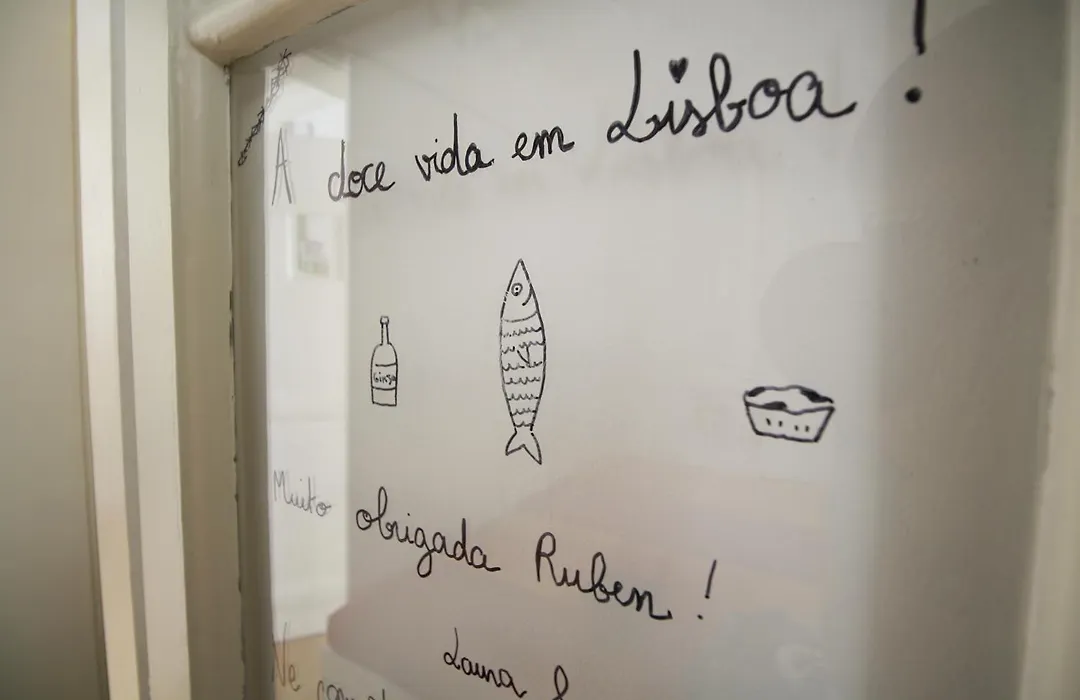 A doce vida em Lisboa !
Ginja
Muito obrigada Ruben !
Laura &